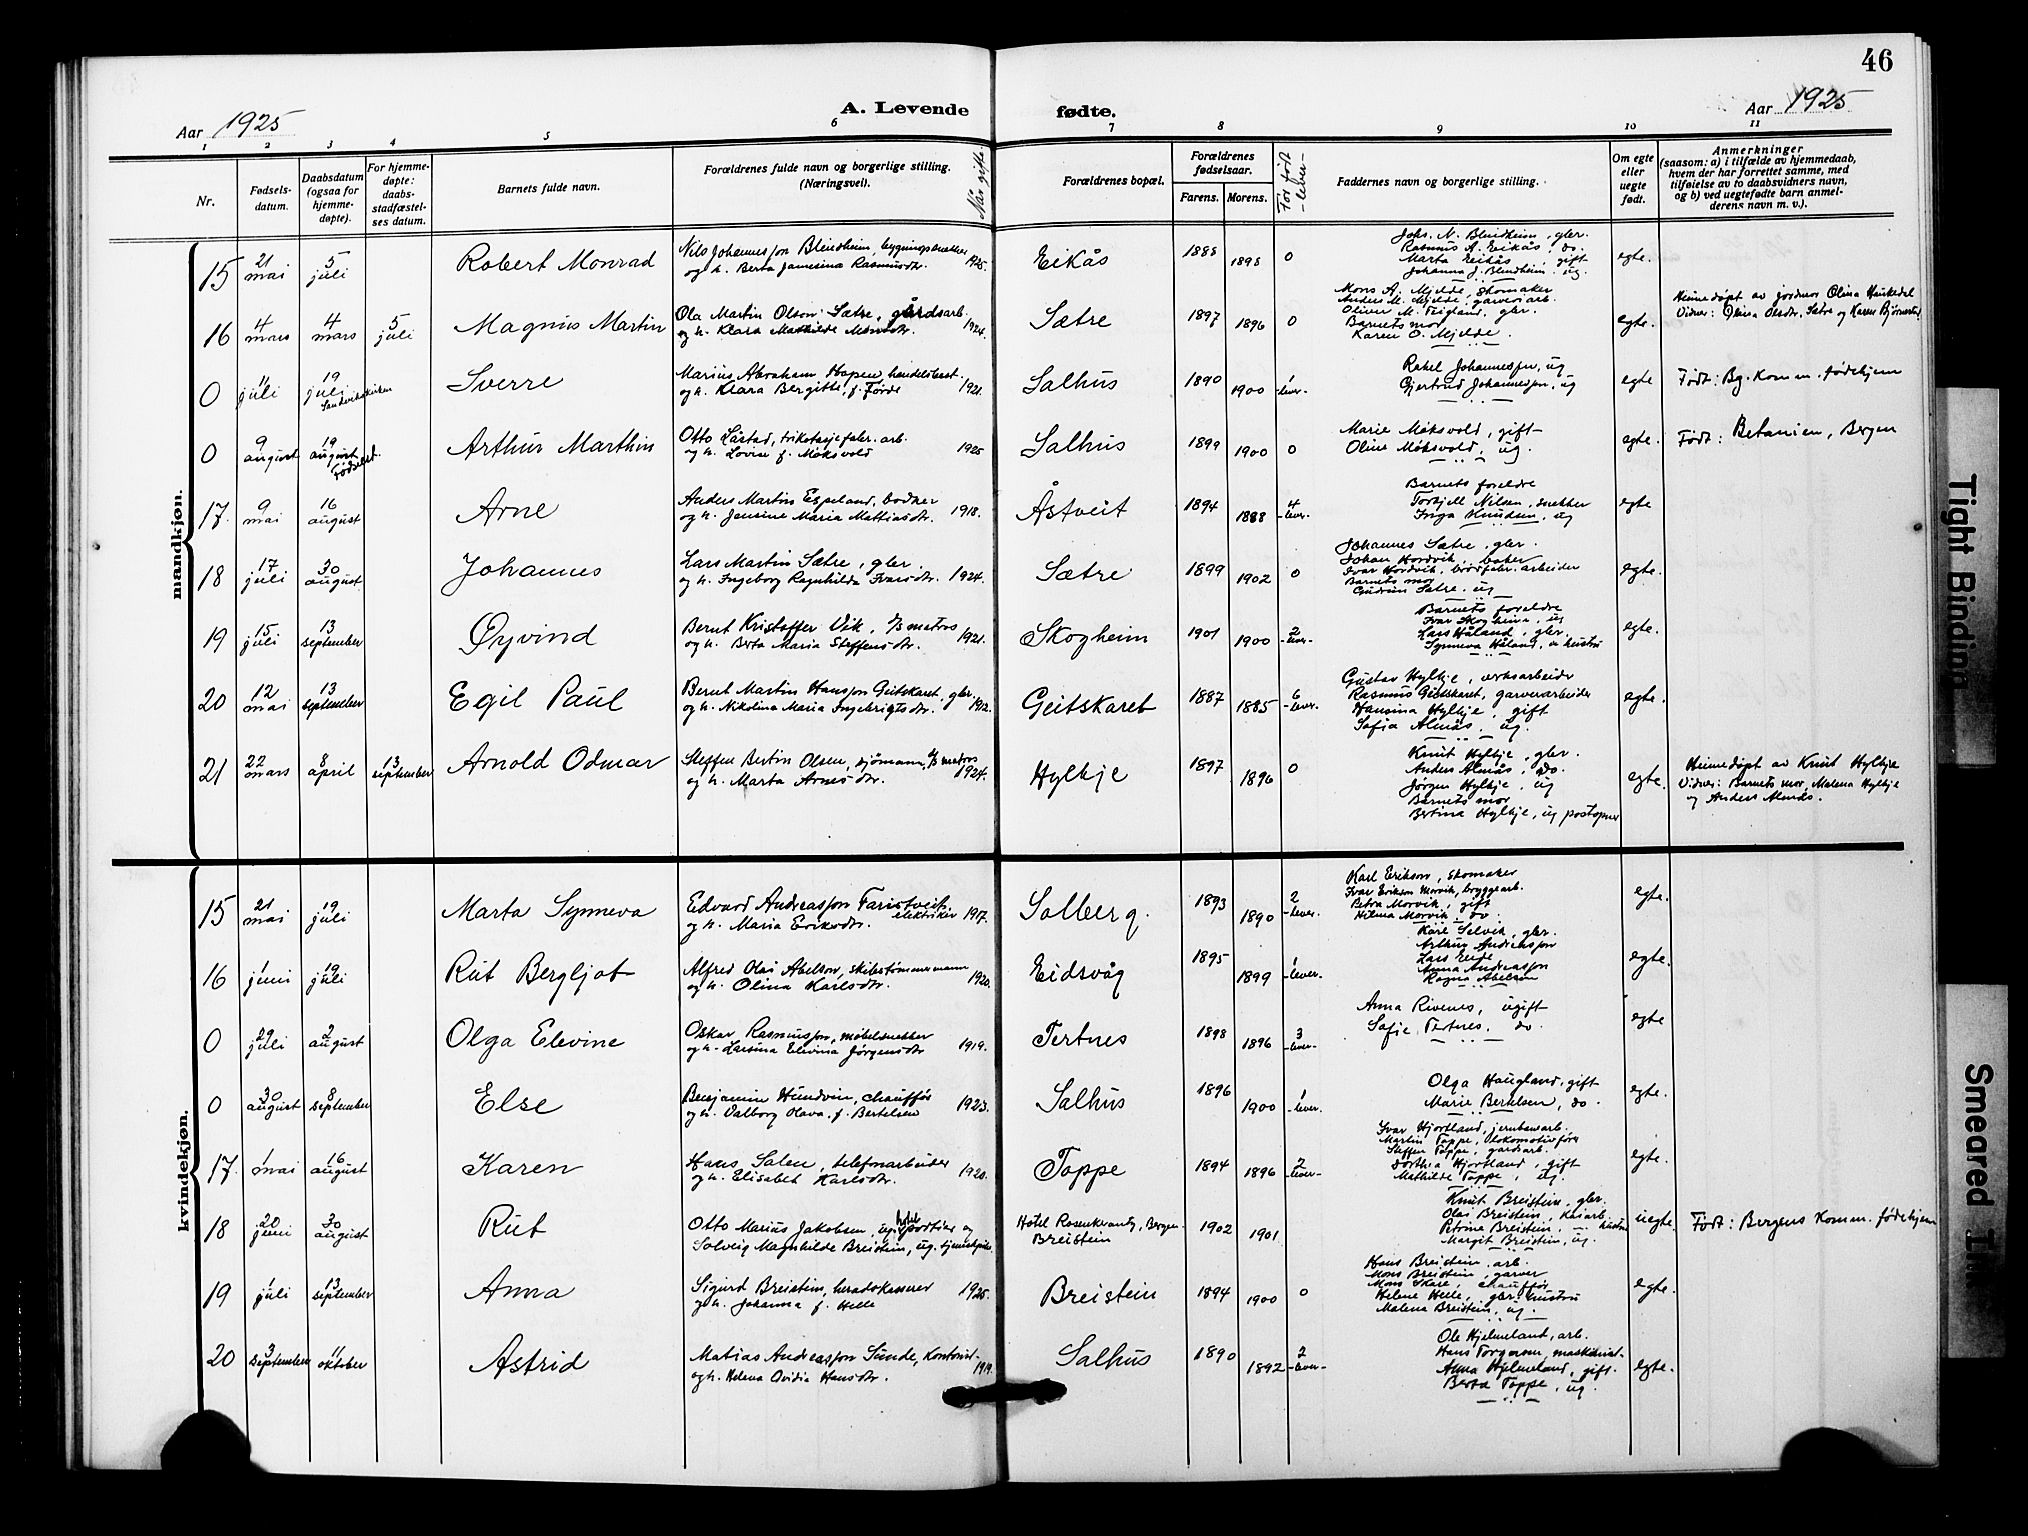 46
Aar 1925
A. Levende fødte.
Aar 1925
1 2 3 4 5 6 7 8 9 10 11
Nr.
Fødsels-
datum.
Daabsdatum
(ogsaa for
hjemme-
døpte).
For hjemme-
døpte:
daabs-
stadfæstel-
ses datum.
Barnets fulde navn.
Forældrenes fulde navn og borgerlige stilling.
(Næringsvei).
Når gifte.
Forældrenes bopæl.
Forældrenes
fødselsaar.
Farens. Morens.
For født
-lever-
Faddernes navn og borgerlige stilling.
Om egte
eller
uegte
født.
Anmerkninger
(saasom: a) i tilfælde av hjemmedaab,
hvem der har forrettet samme, med
tilføielse av to daabsvidners navn,
og b) ved uegtefødte barn anmel-
derens navn m. v.).
mandkjøn.
15 21 mai 5 juli Robert Monrad
Nils Johannesson Blindheim, bygningssnekker
og h. Berta Jamesina Rasmusdtr. 1925.
Eikås 1888 1898 0
Johs. N. Blindheim, gbr.
Rasmus A. Eikås, do.
Marta Eikås, gift
Johanna J. Blindheim, ug.
egte.
16 4 mars 4 mars 5 juli Magnus Martin
Ola Martin Olson Sætre, gårdsarb.
og h. Klara Mathilde Monsdtr. 1924.
Sætre 1897 1896 0
Mons A. Mjelde, skomaker
Anders M. Mjelde, garveriarb.
Oliver M. Teigland, gbr.
Barnets mor
Karen O. Mjelde.
egte.
Heimedøpt av jordmor Olina Haukedal
Vidner: Olina Olsdtr. Sætre og Karen
0 11 juli 19 juli Sandvikskirken Sverre
Marius Abraham Hopen, handelsbest.
og h. Klara Bergitte, f. Førde 1921.
Salhus 1890 1900 1 -lever-
Rakel Johannessen, ug
Gjertrud Johannessen, ug
egte
Født: Bg. Komm. fødehjem
0 9 august 19 august Fødselst. Arthur Marthin
Otto Låstad, trikotasjefabr. arb.
og h. Lovise f. Møksvold 1925
Salhus 1899 1900 0
Marie Møksvold, gift
Oline Møksvold, ug.
egte.
Født: Betanien, Bergen
17. 9 mai 16 august Arne
Anders Martin Espeland, bødker
og h. Jensine Maria Mattiasdtr. 1918.
Åstveit 1894 1888 4 -lever-
Barnets foreldre
Torkjell Nilsen, snekker
Inga Knudsen, ug
egte
18 17 juli 30 august Johannes
Lars Martin Sætre, gbr.
og h. Ingeborg Ragnhilda Ivarsdtr. 1924.
Sætre 1899 1902 0
Johannes Sætre, gbr.
Johan Hordvik, baker
Ivar Hordvik, brødfabr. arbeider
Barnets mor
Gudrun Sætre, ug
egte.
19 15 juli 13 september Øyvind
Bernt Kristoffer Vik, matros
og h. Berta Maria Steffensdtr. 1921.
Skogheim 1901 1900 2 -lever-
Barnets foreldre
Ivar Skogheim, ug
Lars Håland, gbr.
Synneva Håland, hustru
egte.
20 12 mai 13 september Egil Paul
Bernt Martin Hansson Geitskaret, gbr.
og h. Nikolina Maria Ingebrigtsdtr. 1912.
Geitskaret 1887 1885 6 -lever-
Gustav Hylkje, verksarbeider
Rasmus Geitskaret, garverarbeider
Hansina Hylkje, gift
Sofia Almås, ug.
egte.
21 22 mars 8 april 13 september Arnold Odmar
Steffen Bertin Olsen, sjømann, matros
og h. Marta Arnesdtr. 1924.
Hylkje 1897 1896 0
Knut Hylkje, gbr.
Anders Almås, do.
Jørgen Hylkje, ug
Barnets mor
Bertina Hylkje, ug postopner
egte.
Heimedøpt av Knut Hylkje
Vidner: Barnets mor, Malena Hylkje
og Anders Almås.
kvindekjøn.
15 21 mai 19 juli Marta Synneva
Edvard Andreasson Faristveit, elektriker 1917.
og h. Maria Eriksdtr.
Solberg. 1893 1890 2 -lever-
Karl Erikson, skomaker
Ivar Erikson Morvik, bryggearb.
Petra Morvik, gift
Hilma Morvik, do.
egte.
16 1 juni 19 juli Rut Bergljot
Alfred Olai Abelson, skibstømmermann
og h. Olina Karlsdtr. 1920.
Eidsvåg 1895 1899 1 -lever-
Karl Selvik, gbr.
Arthur Andreasson
Lars Eide
Anna Andreasson
Ragna Abelson
egte.
0 29 juli 2 august Olga Elevine
Oskar Rasmusson, møbelsnekker
og h. Larsina Elevina Jørgensdtr 1919.
Tertnes 1898 1896 3 -lever-
Anna Rivenes, ugift
Sofie Tertnes, do.
egte
0 30 august 8 september Else
Benjamin Hundvin, chauffør
og h. Valborg Olava, f. Bertelsen 1923.
Salhus 1896 1900 1 -lever.
Olga Haugland, gift
Marie Bertelsen, do.
egte.
17. 1 mai 16 august Karen
Hans Salen, telefonarbeider
og h. Elisabet Karlsdtr. 1920.
Toppe 1894 1896 2 -lever-
Ivar Hjortland, jernbanarb.
Martin Toppe, lokomotivfører
Steffen Toppe, gardsarb.
Dorthea Hjortland, gift
Mathilde Toppe, ug.
egte.
18 20 juni 30 august Rut
Otto Marius Jakobsen, ug. hotel portier og
Solveig Magnhilde Breistein, ug. tjenestepike
Hotel Rosenkrantz, Bergen
Breistein 1902 1901
Knut Breistein, gbr.
Olai Breistein, kaiarb.
Petrine Breistein, hustru
Margit Breistein, ug.
uegte.
Født: Bergens Komm. fødehjem
19 1 juli 13 september Anna
Sigurd Breistein, heradskasserer
og h. Johanna f. Helle 1925.
Breistein 1894 1900 0
Hans Breistein, arb.
Mons Breistein, garver
Mons Skare, chauffør
Helene Helle, gbr. hustru
Malena Breistein, ug.
egte.
20 3 september 11 oktober Astrid
Matias Andreasson Sunde, kontorist
og h. Helena Ovidia Hansdtr. 1919.
Salhus 1890 1892 2 -lever-
Ole Hjelmeland, arb.
Hans Torgersen, maskinist
Anna Hjelmeland, gift.
Berta Toppe, ug.
egte.
Tight Binding
Smeared